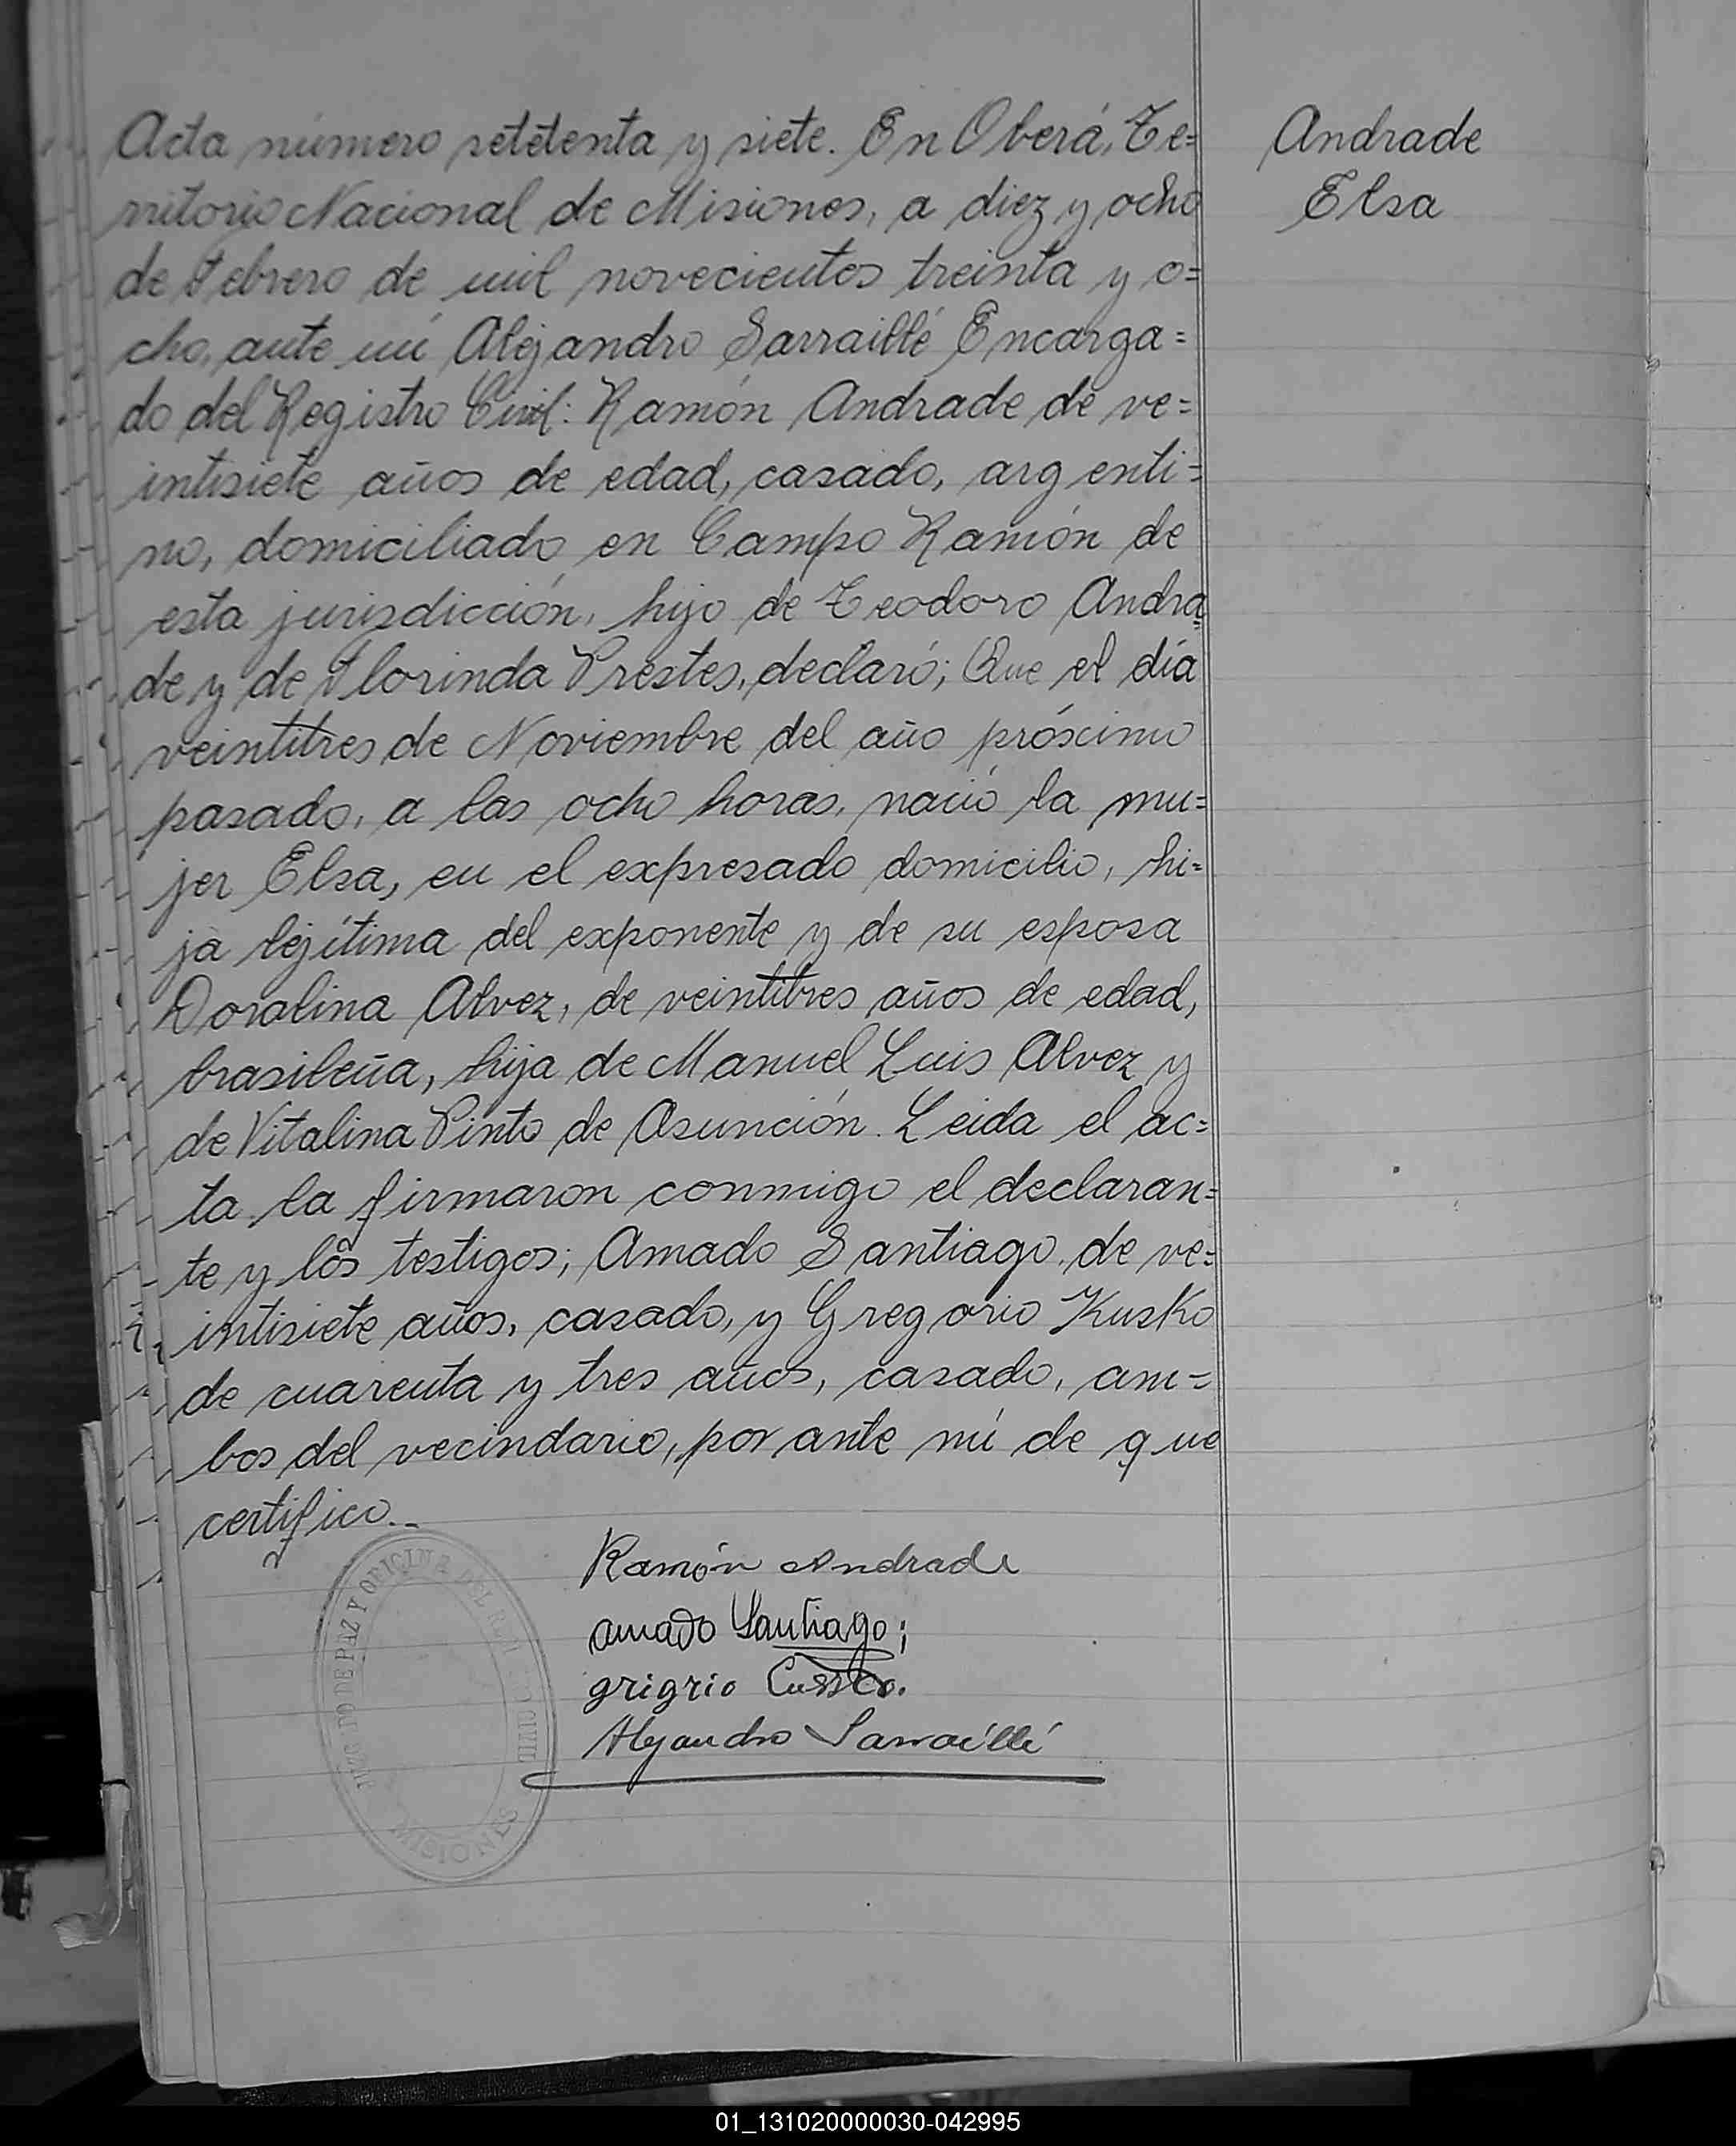 Acta número setetenta y siete. En Oberá, Te=
rritorio Nacional de Misiones, a diez y ocho
de Febrero de mil novecientos treinta y o=
cho, ante mí Alejandro Sarraillé Encarga=
do del Registro Civil: Ramón Andrade de ve=
intisiete años de edad, casado, argenti=
no, domiciliado en Campo Ramón de
esta jurisdicción, hijo de Teodoro Andra
de y de Florinda Prestes, declaró; Que el día
veintitres de Noviembre del año próximo
pasado, a las ocho horas, nació la mu=
jer Elsa, en el expresado domicilio, hi=
ja lejítima del exponente y de su esposa
Doralina Alvez, de veintitres años de edad,
brasileña, hija de Manuel Luis Alvez y
de Vitalina Pinto de Asunción. Leida el ac=
ta la firmaron conmigo el declaran=
te y los testigos; Amado Santiago, de ve=
intisiete años, casado, y Gregorio Kusko
de cuarenta y tres años, casado, am=
bos del vecindario, por ante mí de que
certifico.-
Andrade
Elsa
Ramón Andrade
amado Santiago;
grigrio Cussco.
Alejandro Sarraillé
JUZGADO DE PAZ Y OFICINA DEL REG. CIVIL
MISIONES
01_131020000030-042995